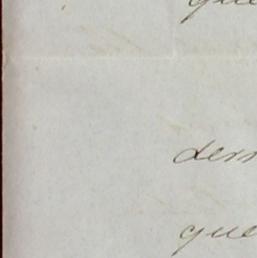 que
derr
que